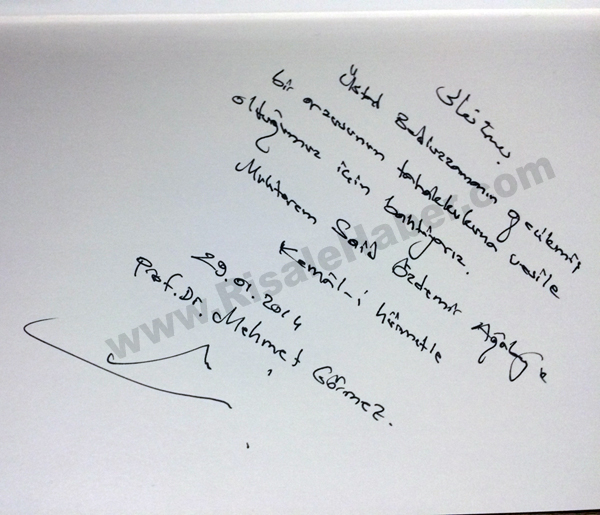 بسمه تعالى
Üstad Bediüzzamanın gecikmiş
bir arzusunun tahakkukuna vesile
olduğumuz için bahtiyarız.
Muhterem Said Özdemir Ağabeye
Kemâl-i hürmetle
29.01.2014
Prof. Dr. Mehmet Görmez.
www.RisaleHaber.com